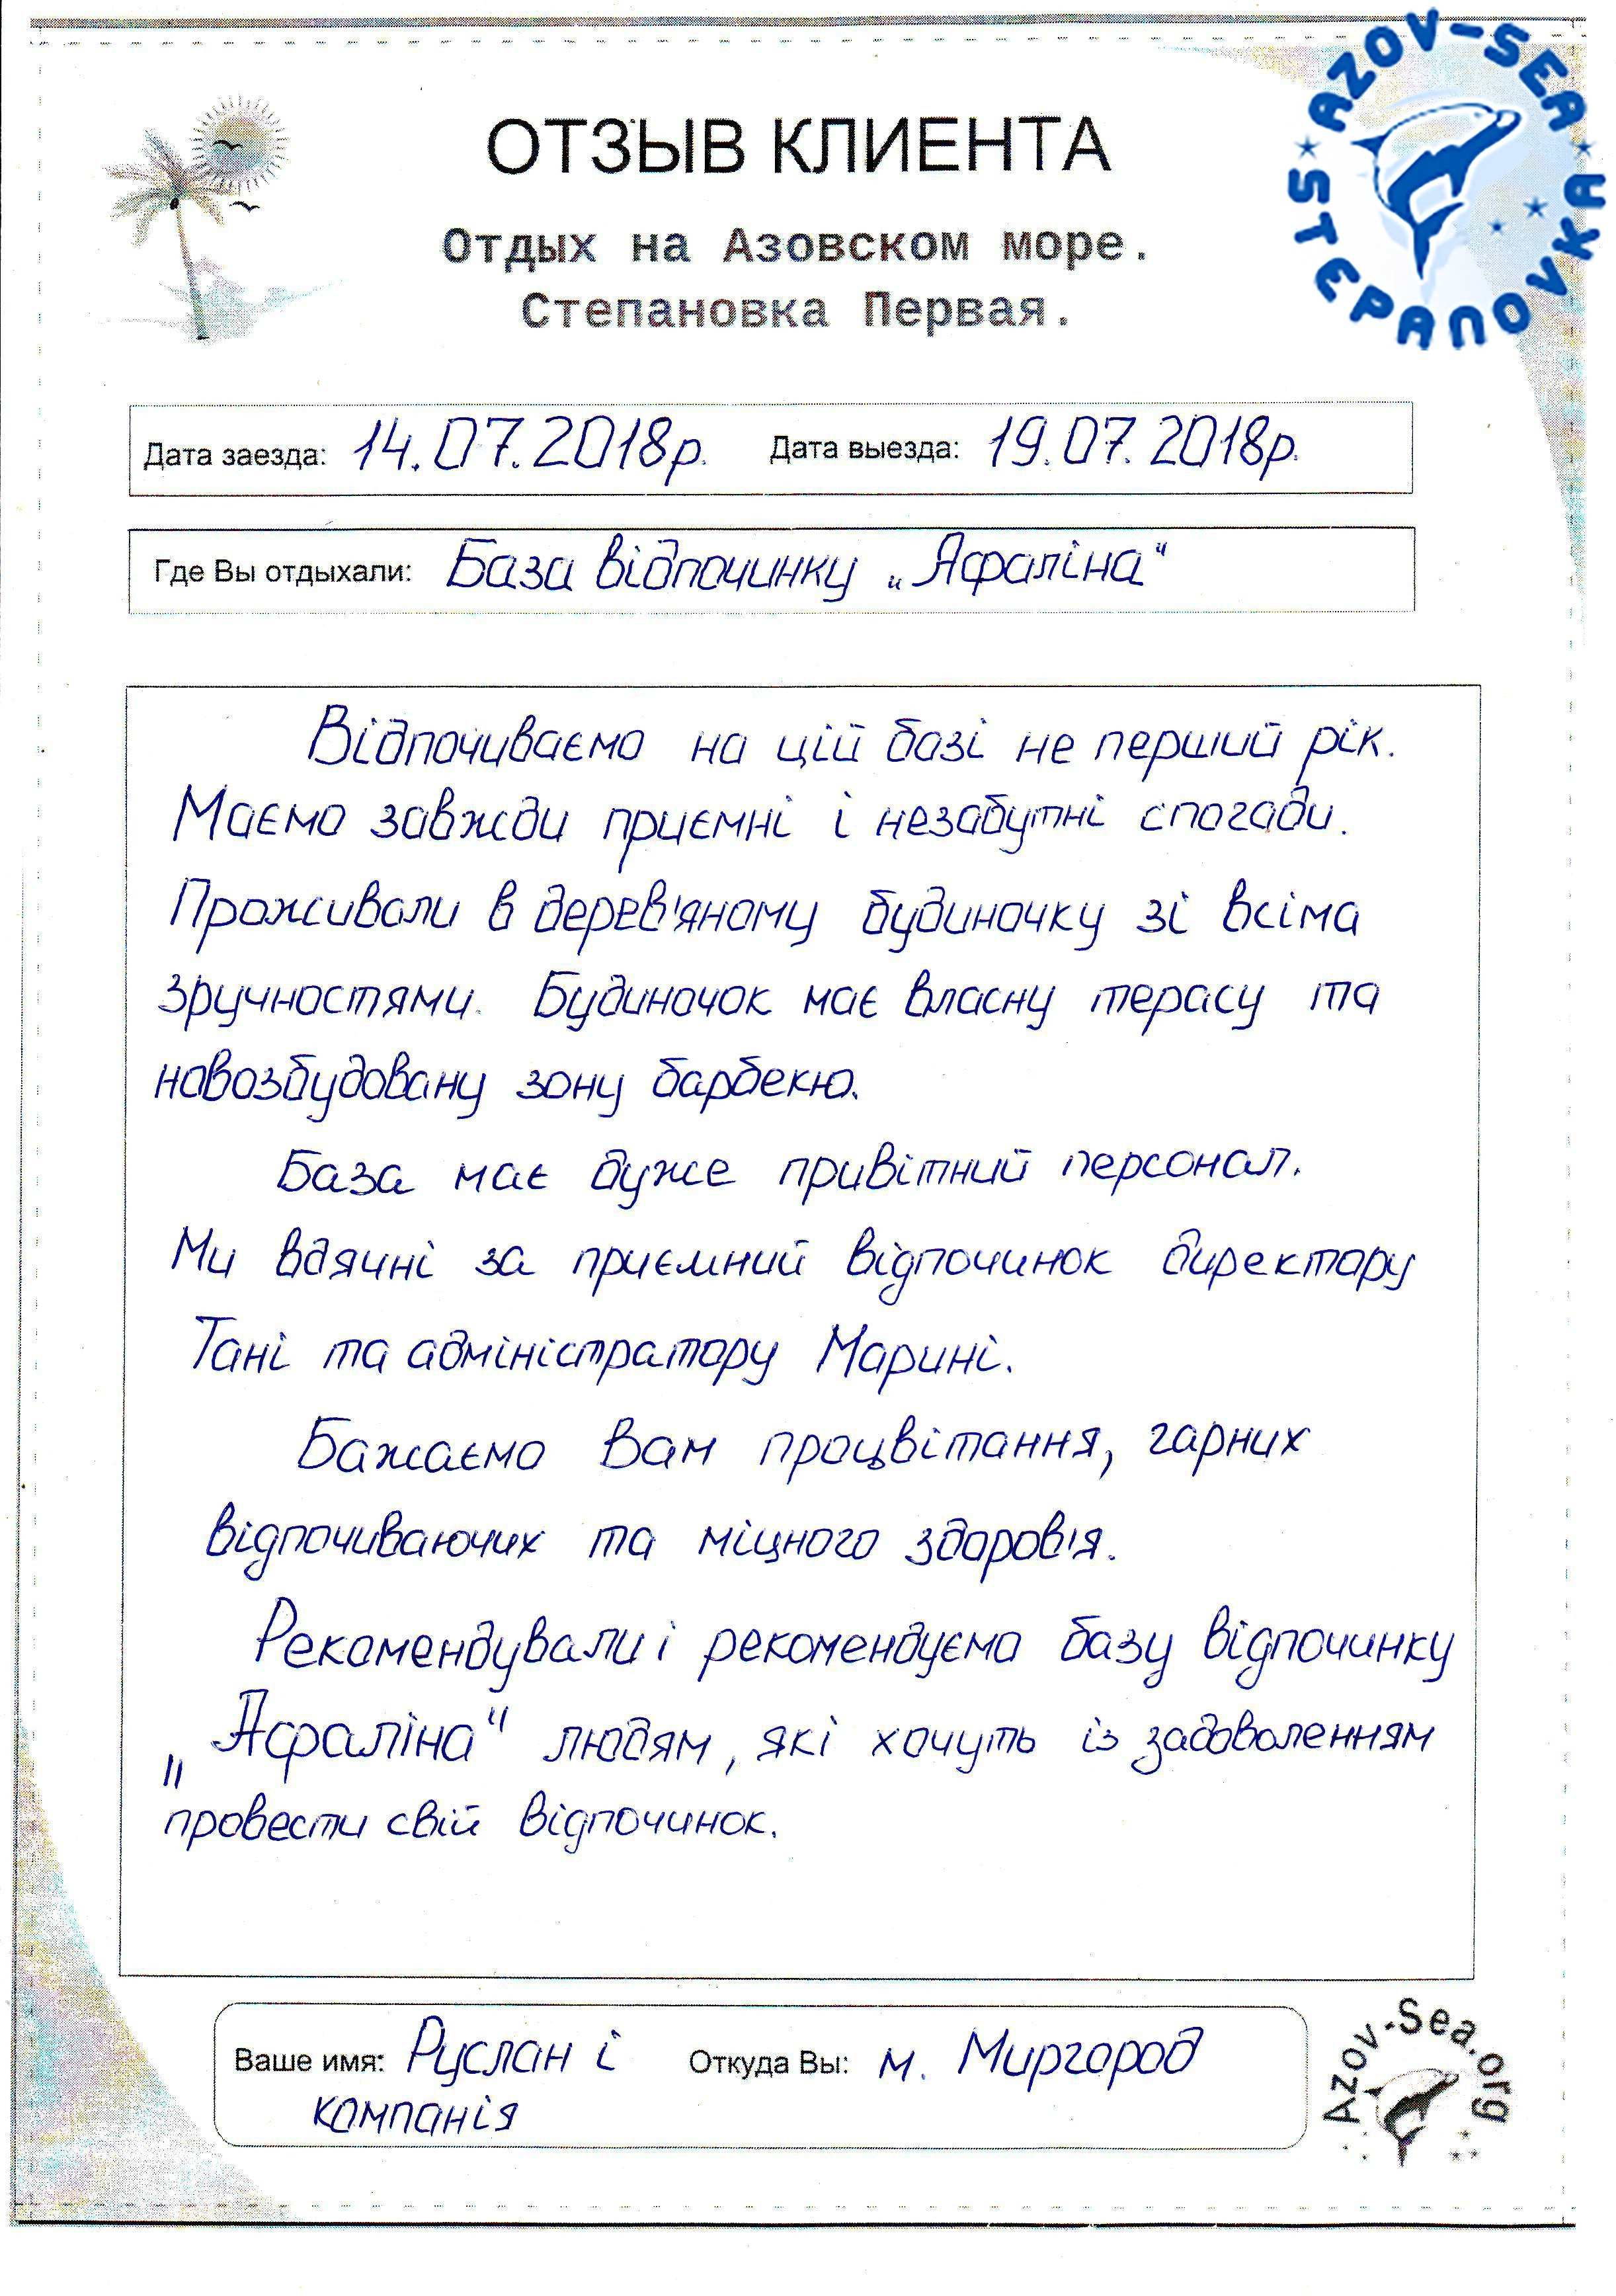 AZOV-SEA
STEPANOVKA
ОТЗЫВ КЛИЕНТА
Отдых на Азовском море.
Степановка Первая.
Дата заезда: 14.07.2018р. Дата выезда: 19.07.2018р.
Где Вы отдыхали: База відпочинку „Афаліна“
Відпочиваємо на цій базі не перший рік.
Маємо завжди приємні і незабутні спогади.
Проживали в дерев'яному будиночку зі всіма
зручностями. Будиночок має власну терасу та
новозбудовану зону барбекю.
База має дуже привітний персонал.
Ми вдячні за приємний відпочинок директору
Тані та адміністратору Марині.
Бажаємо Вам процвітання, гарних
відпочиваючих та міцного здоров'я.
Рекомендували і рекомендуємо базу відпочинку
„Афаліна“ людям, які хочуть із задоволенням
провести свій відпочинок.
Ваше имя: Руслан і Откуда Вы: м. Миргород
компанія
Azov-Sea.org